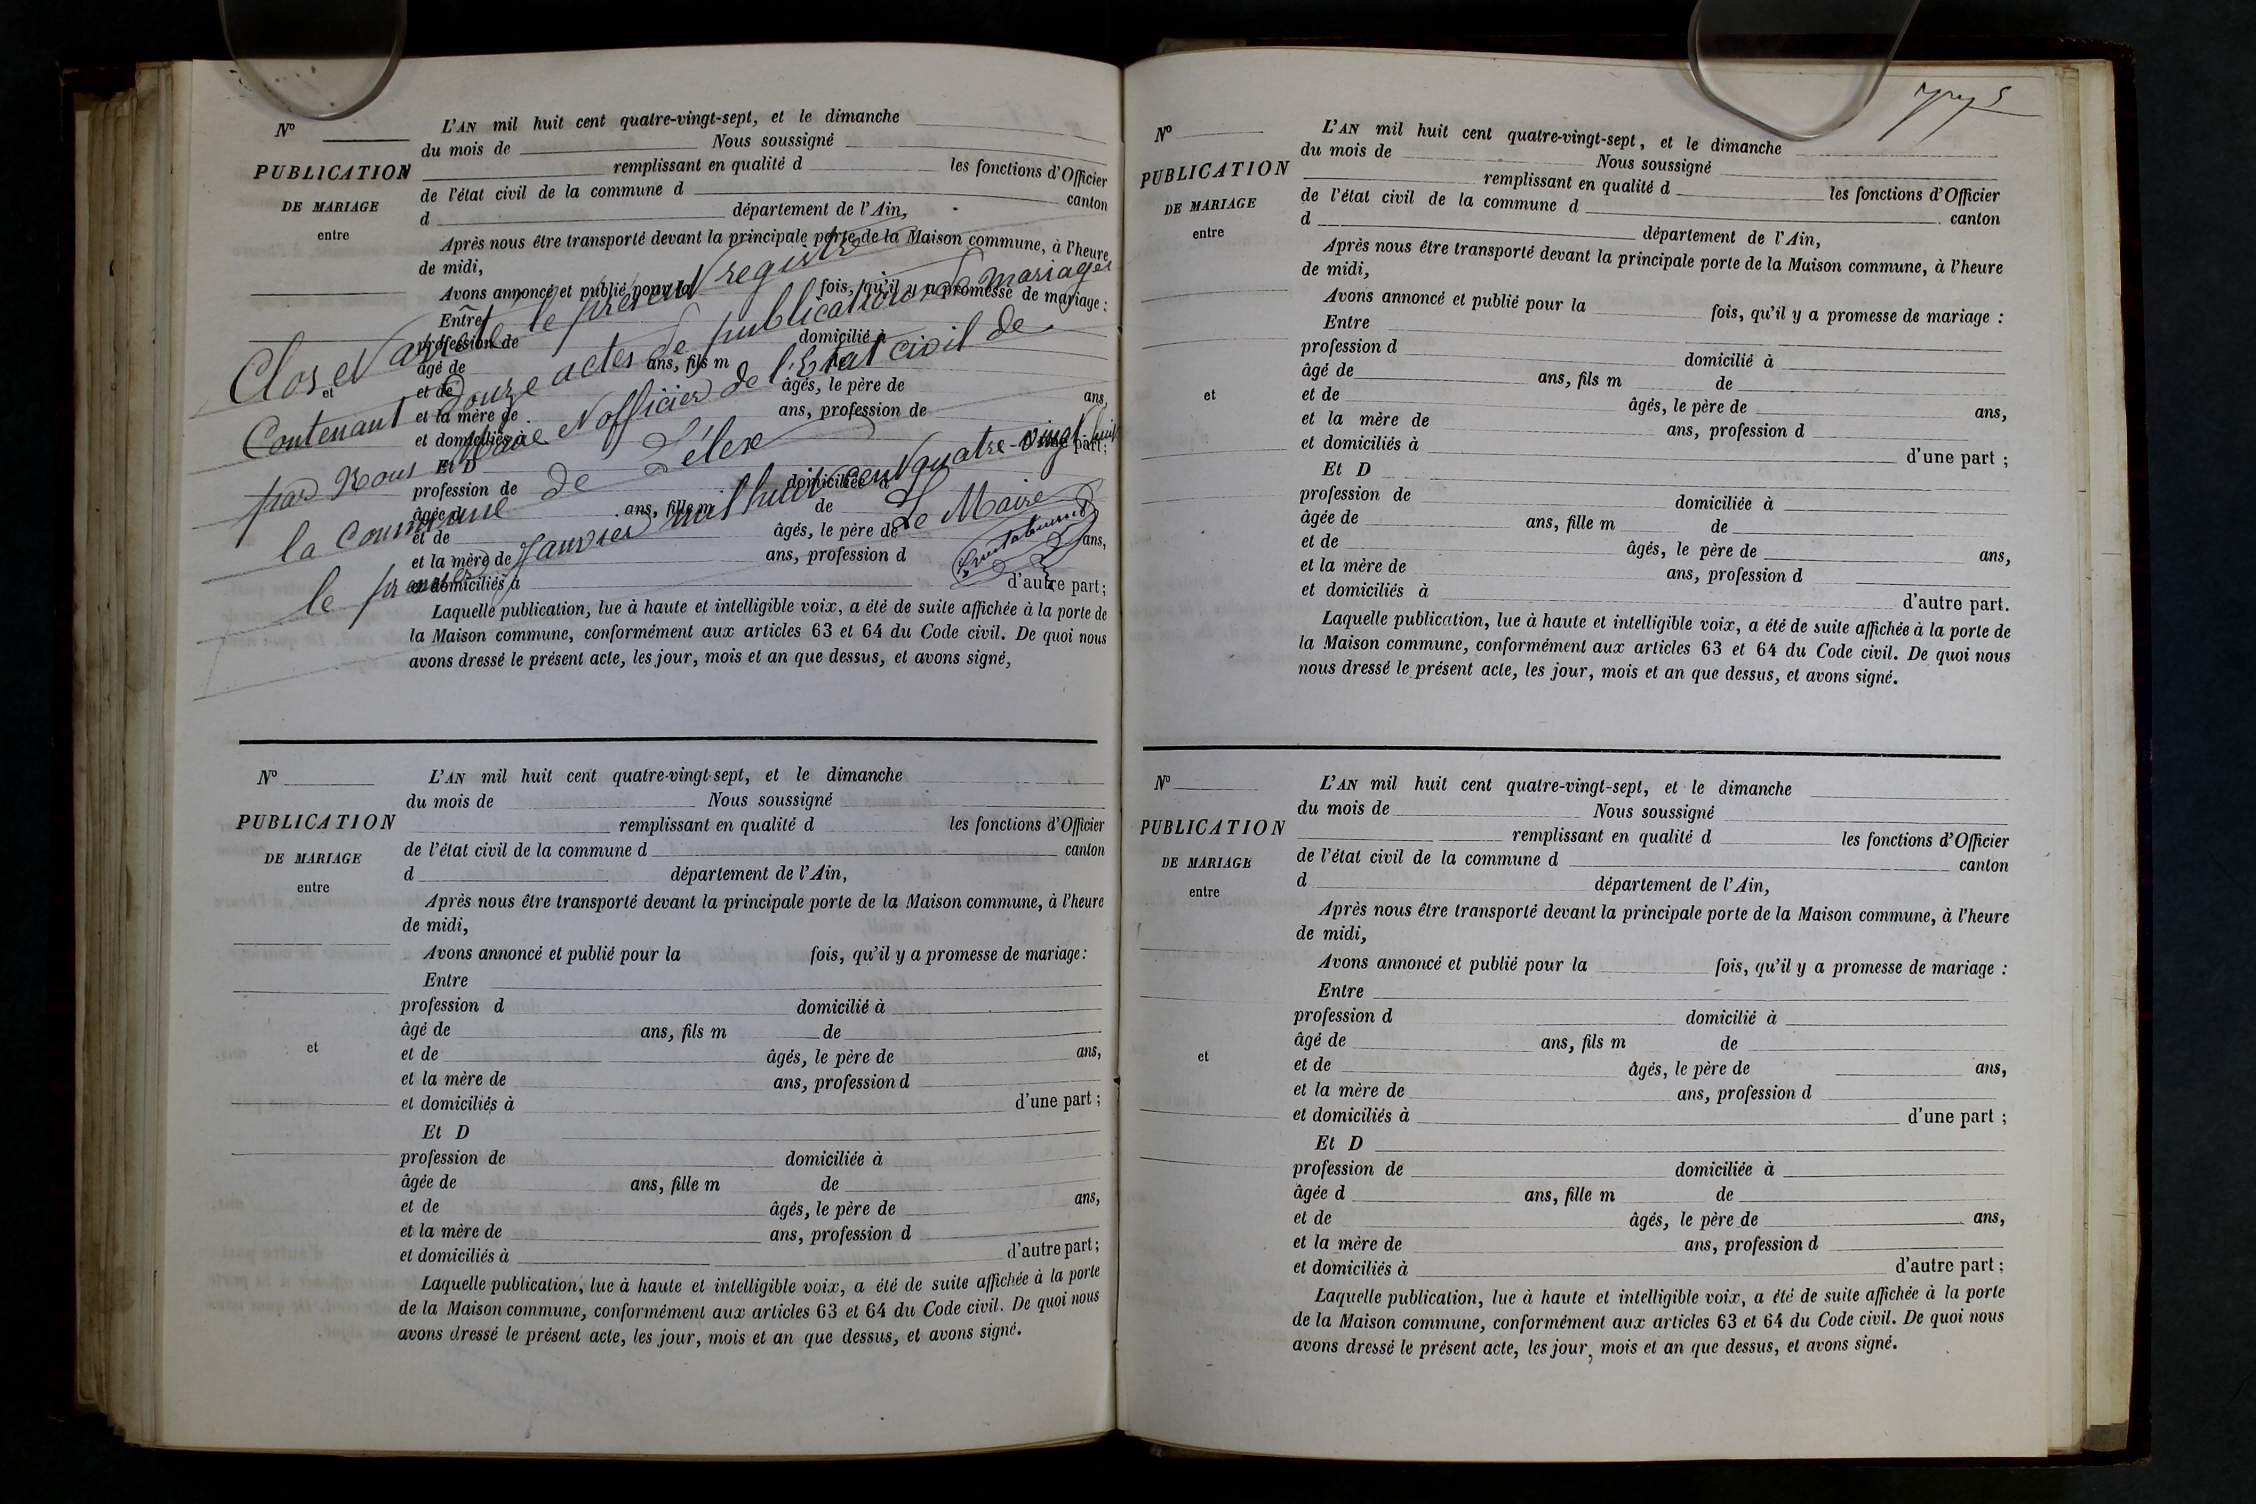 N°
PUBLICATION
DE MARIAGE
entre
et
L'AN mil huit cent quatre-vingt-sept, et le dimanche
du mois de Nous soussigné
remplissant en qualité d les fonctions d'Officier
de l'état civil de la commune d canton
d département de l'Ain,
Après nous être transporté devant la principale porte de la Maison commune, à l'heure
de midi,
Avons annoncé et publié pour la fois, qu'il y a promesse de mariage :
Entre
profession de domicilié à
âgé de ans, fils m de
et de âgés, le père de ans,
et la mère de ans, profession de
et domiciliés à d'une part;
Et D
profession de domiciliée à
âgée d ans, fille m de
et de âgés, le père de ans,
et la mère de ans, profession d
et domiciliés à d'autre part;
Laquelle publication, lue à haute et intelligible voix, a été de suite affichée à la porte de
la Maison commune, conformément aux articles 63 et 64 du Code civil. De quoi nous
avons dressé le présent acte, les jour, mois et an que dessus, et avons signé,
Clos et arrêté le présent registre
Contenant Douze actes de publications de mariages
par Nous Maire et officier de l'Etat civil de
la commune de Lélex
le premier Janvier mil huit cent quatre-vingt huit
Le Maire
N°
PUBLICATION
DE MARIAGE
entre
et
L'AN mil huit cent quatre-vingt-sept, et le dimanche
du mois de Nous soussigné
remplissant en qualité d les fonctions d'Officier
de l'état civil de la commune d canton
d département de l'Ain,
Après nous être transporté devant la principale porte de la Maison commune, à l'heure
de midi,
Avons annoncé et publié pour la fois, qu'il y a promesse de mariage:
Entre
profession d domicilié à
âgé de ans, fils m de
et de âgés, le père de ans,
et la mère de ans, profession d
et domiciliés à d'une part;
Et D
profession de domiciliée à
âgée de ans, fille m de
et de âgés, le père de ans,
et la mère de ans, profession d
et domiciliés à d'autre part;
Laquelle publication, lue à haute et intelligible voix, a été de suite affichée à la porte
de la Maison commune, conformément aux articles 63 et 64 du Code civil. De quoi nous
avons dressé le présent acte, les jour, mois et an que dessus, et avons signé.
N°
PUBLICATION
DE MARIAGE
entre
et
L'AN mil huit cent quatre-vingt-sept, et le dimanche
du mois de Nous soussigné
remplissant en qualité d les fonctions d'Officier
de l'état civil de la commune d canton
d département de l'Ain,
Après nous être transporté devant la principale porte de la Maison commune, à l'heure
de midi,
Avons annoncé et publié pour la fois, qu'il y a promesse de mariage :
Entre
profession d domicilié à
âgé de ans, fils m de
et de âgés, le père de ans,
et la mère de ans, profession d
et domiciliés à d'une part ;
Et D
profession de domiciliée à
âgée de ans, fille m de
et de âgés, le père de ans,
et la mère de ans, profession d
et domiciliés à d'autre part.
Laquelle publication, lue à haute et intelligible voix, a été de suite affichée à la porte de
la Maison commune, conformément aux articles 63 et 64 du Code civil. De quoi nous
nous dressé le présent acte, les jour, mois et an que dessus, et avons signé.
N°
PUBLICATION
DE MARIAGE
entre
et
L'AN mil huit cent quatre-vingt-sept, et le dimanche
du mois de Nous soussigné
remplissant en qualité d les fonctions d'Officier
de l'état civil de la commune d canton
d département de l'Ain,
Après nous être transporté devant la principale porte de la Maison commune, à l'heure
de midi,
Avons annoncé et publié pour la fois, qu'il y a promesse de mariage :
Entre
profession d domicilié à
âgé de ans, fils m de
et de âgés, le père de ans,
et la mère de ans, profession d
et domiciliés à d'une part ;
Et D
profession de domiciliée à
âgée d ans, fille m de
et de âgés, le père de ans,
et la mère de ans, profession d
et domiciliés à d'autre part ;
Laquelle publication, lue à haute et intelligible voix, a été de suite affichée à la porte
de la Maison commune, conformément aux articles 63 et 64 du Code civil. De quoi nous
avons dressé le présent acte, les jour, mois et an que dessus, et avons signé.